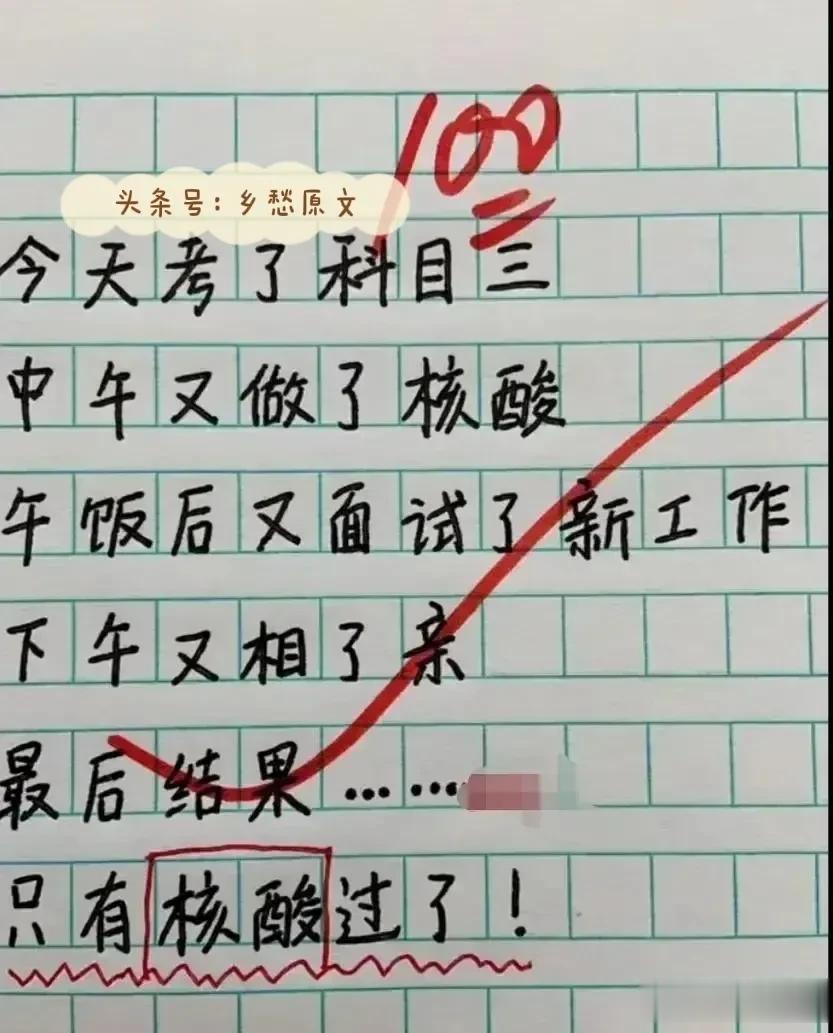 100
头条号:乡愁原文
今天考了科目三
中午又做了核酸
午饭后又面试了新工作
下午又相了亲
最后结果……
只有核酸过了!